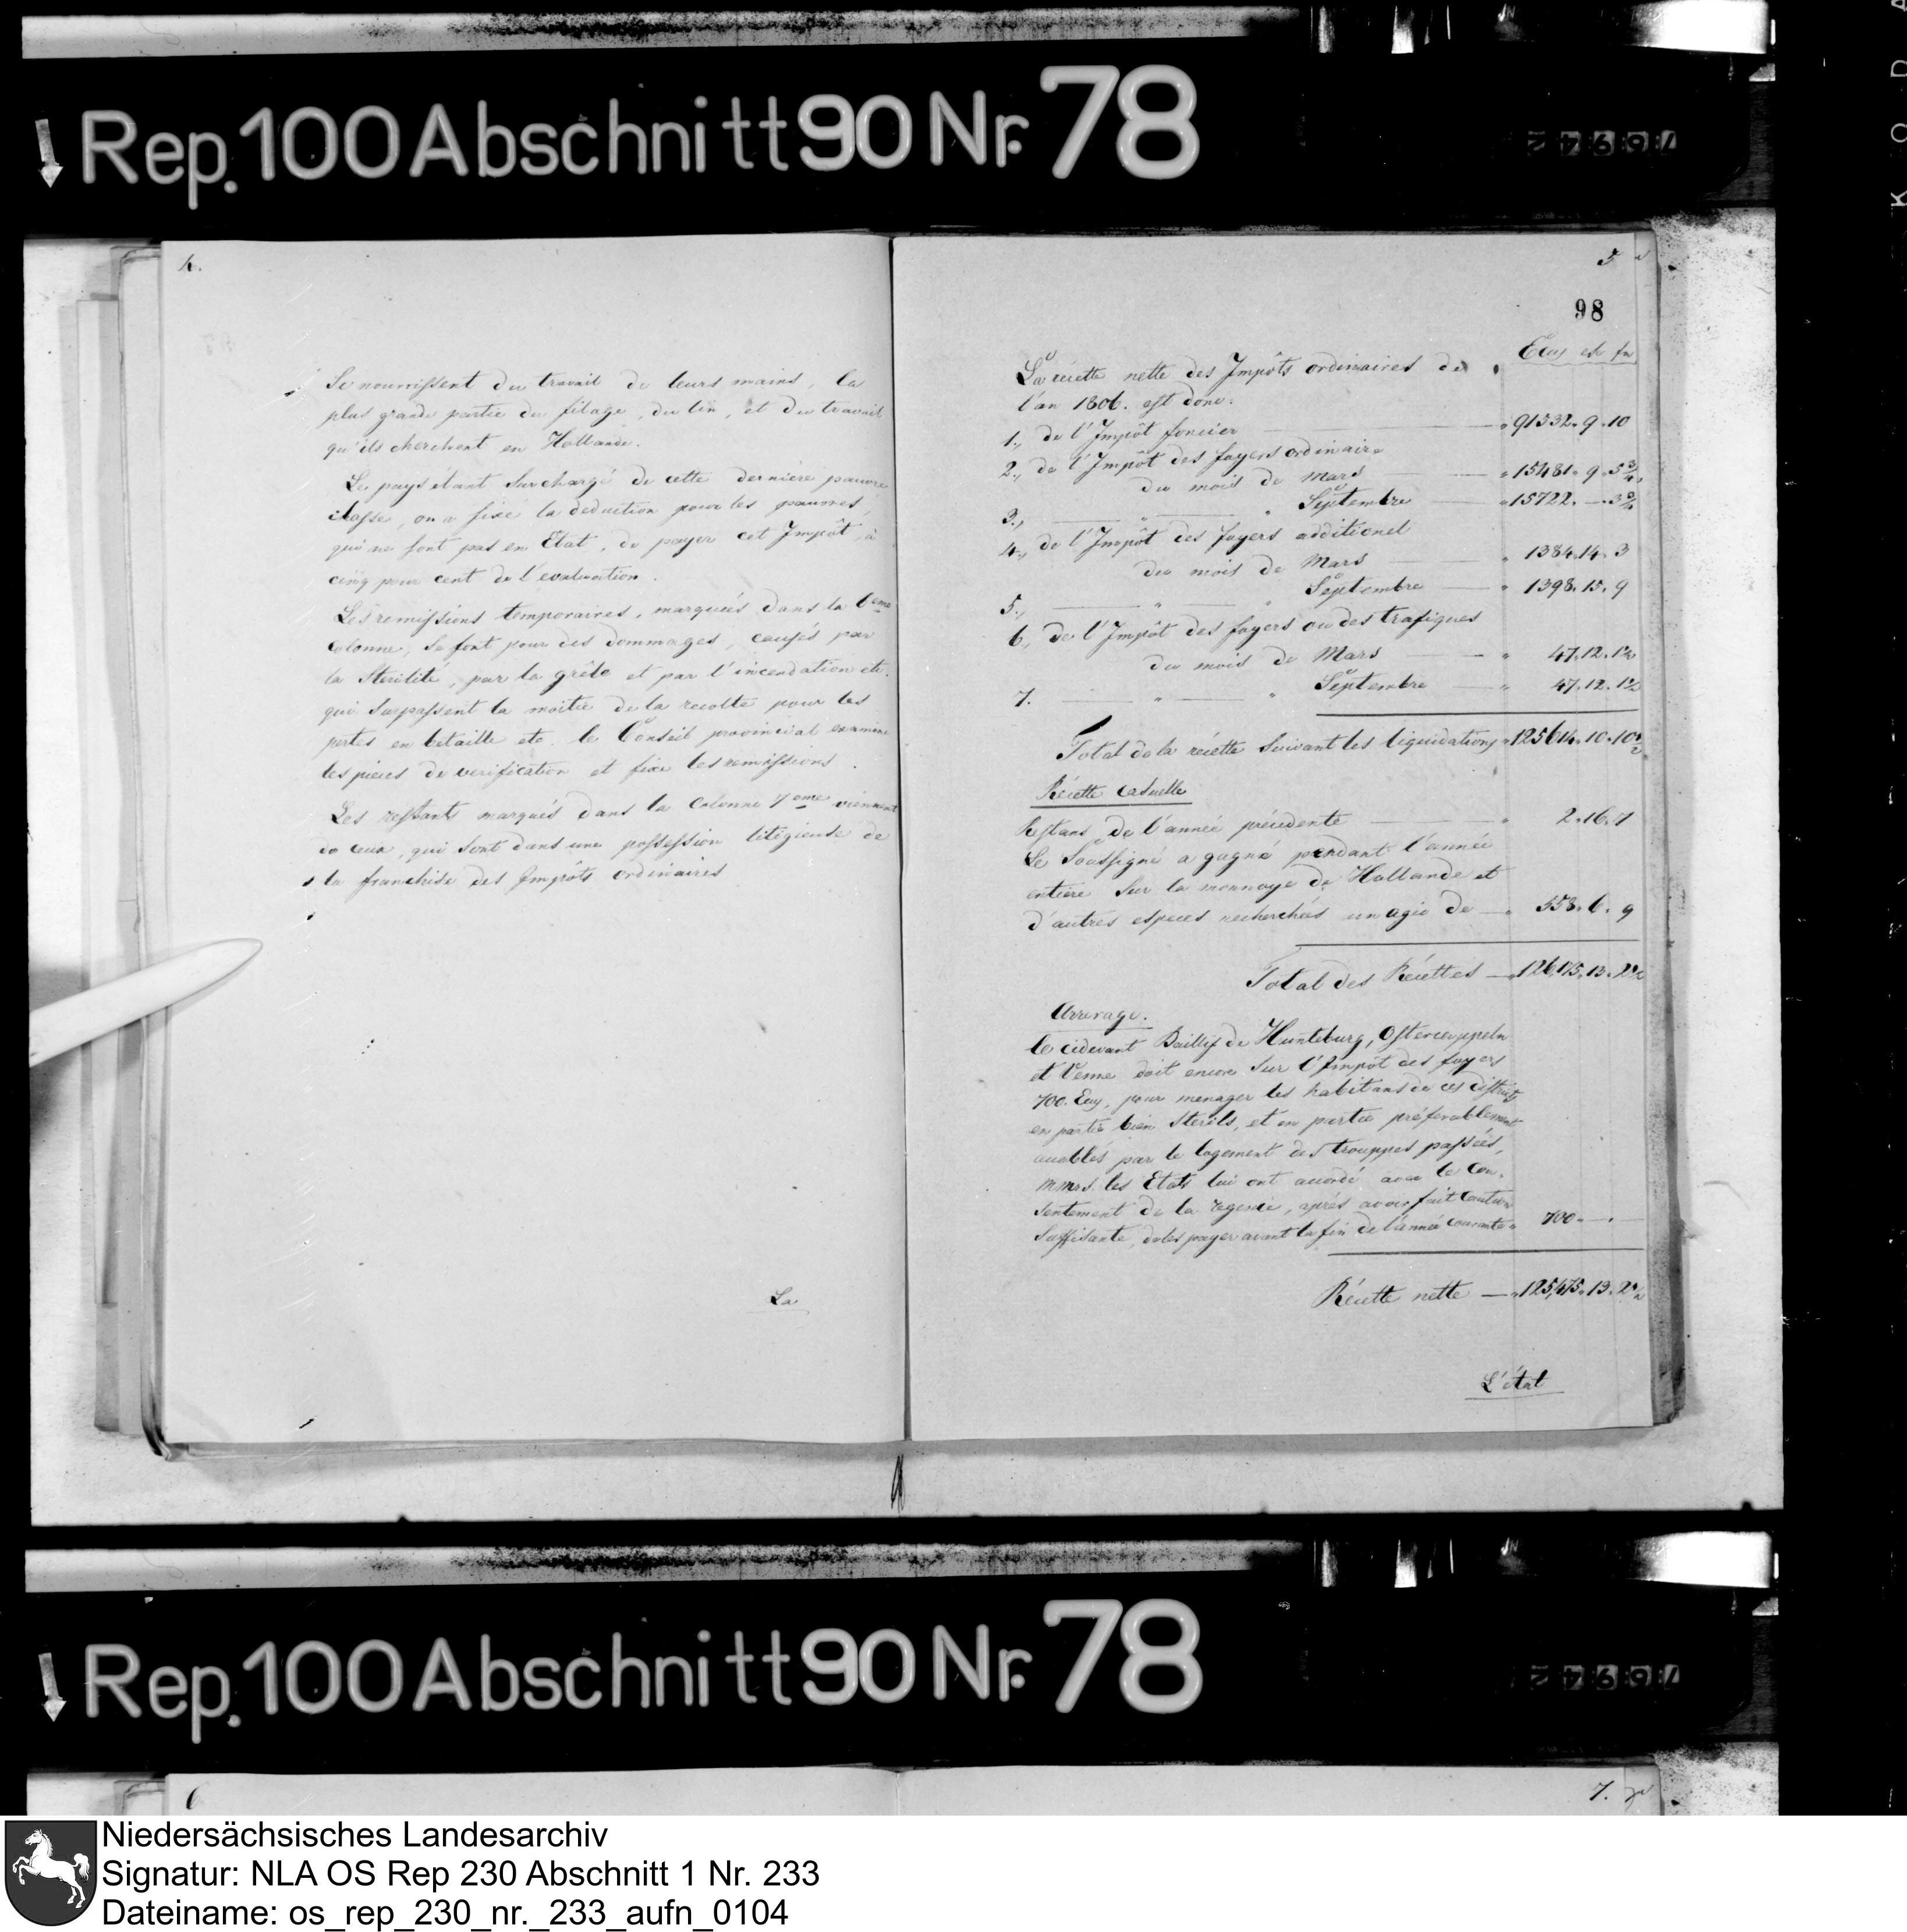 Rep. 100 Abschnitt 90 Nr. 78
4.
Se nourrissent du travail de leurs mains, la
plus grande partie du filage, du lin, et du travail
qu'ils cherchent en Hollande.
Le pays étant surchargé de cette dernière pauvre
classe, on a fixé la deduction pour les pauvres,
qui ne sont pas en Etat, de payer cet Impôt, à
cinq pour cent de l'evaluation.
Les remissions temporaires, marquées dans la 6eme
Colonne, se font pour des dommages, causés par
la Sterilité, par la grêle et par l'incendation etc.
qui surpassent la moitié de la recolte pour les
pertes en betaille etc. le Conseil provincial examine
les pieces de verification et fixe les remissions.
Les restants marqués dans la Colonne 7eme viennent
de ceux, qui sont dans une possession litégieuse de
la franchise des Impôts ordinaires
La
5
98
Ecus
La récette nette des Impôts ordinaires de
l'an 1806. est donc:
1., de l'Impôt foncier — 91532. 9. 10
2., de l'Impôt des foyers ordinaire
du mois de Mars — 15481. 9. 5 3/4
3., — " — " Septembre — 15722. —. 3 3/4
4., de l'Impôt des foyers additionel
du mois de Mars — 1384. 14. 3
5., — " — " Septembre — 1398. 15. 9
6., de l'Impôt des foyers ou des trafiques
du mois de Mars — " 47. 12. 1 1/2
7. — " — " Septembre — " 47. 12. 1 1/2
Total de la récette suivant les liquidations " 125614. 10. 10 1/2
Récette casuelle
Restans de l'année précédente — " 2. 16. 7
Le Soussigné a gagné pendant l'année
entière sur la monnaye de Hollande et
d'autres especes recherchées un agio de — " 558. 6. 9
Total des Récettes — 126,175. 13. 2 1/2
Arrerage.
le cidevant Baillif de Hunteburg, Ostercappeln
et Venne doit encore sur l'Impôt des foyers
700. Ecus, pour menager les habitans de ces districts
en partie bien sterils, et en partie préferablement
accablés par le logement des trouppes passées,
mmrs. les Etats lui ont accordé avec le con-
sentement de la regence, après avoir fait Caution
suffisante, de les payer avant la fin de l'année courante " 700. —. —
Récette nette — 125,475. 13. 2 1/2
L'état
Rep. 100 Abschnitt 90 Nr. 78
6
7.
Niedersächsisches Landesarchiv
Signatur: NLA OS Rep 230 Abschnitt 1 Nr. 233
Dateiname: os_rep_230_nr._233_aufn_0104